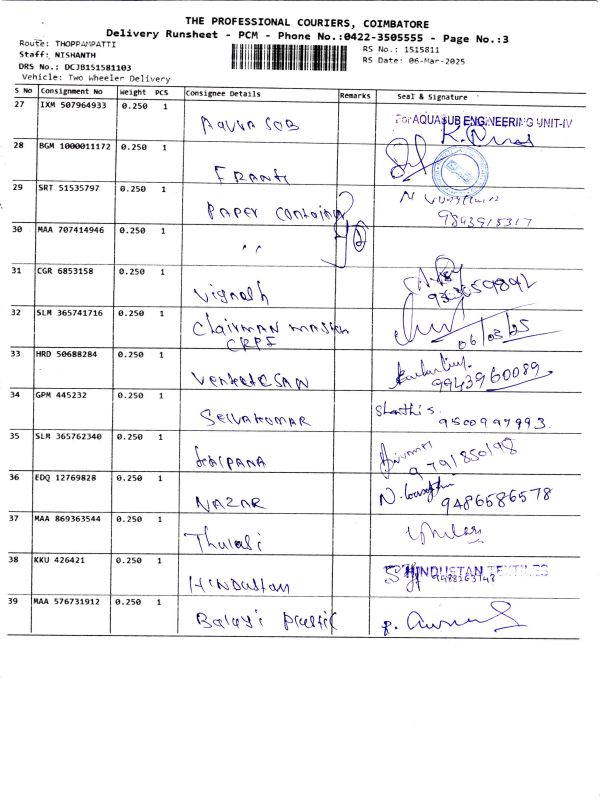 THE PROFESSIONAL COURIERS, COIMBATORE
Delivery Runsheet - PCM - Phone No.:0422-3505555 - Page No.:3
Route: THOPPAMPATTI
Staff: NISHANTH
DRS No.: DCJB151581103
Vehicle: Two Wheeler Delivery
RS No.: 1515811
RS Date: 06-Mar-2025
S No Consignment No Weight PCS Consignee Details Remarks Seal & Signature
27 IXM 507964933 0.250 1
AQUA SUB
For AQUASUB ENGINEERING UNIT-IV
28 BGM 1000011172 0.250 1
FRANK
29 SRT 51535797 0.250 1
PAPER Container
9843915317
30 MAA 707414946 0.250 1
,,
31 CGR 6853158 0.250 1
Vignesh
32 SLM 365741716 0.250 1
Chairman master
CRPF
06/03/25
33 HRD 50688284 0.250 1
VENKATESAN
9943960089
34 GPM 445232 0.250 1
SELVAKUMAR
Shanthi s.
9500997993.
35 SLM 365762340 0.250 1
KALPANA
9791850198
36 EDQ 12769828 0.250 1
NAZAR
9486586578
37 MAA 869363544 0.250 1
Thulasi
38 KKU 426421 0.250 1
HINDUSTAN
HINDUSTAN TEXTILES
39 MAA 576731912 0.250 1
Balaji Plastic